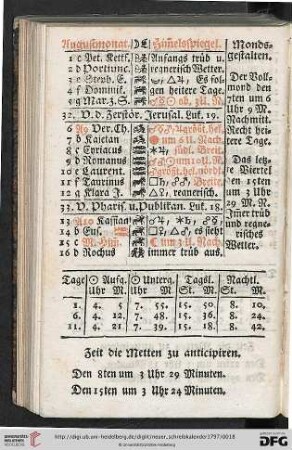 Augustmonat. Himelsspiegel. Monds-
1 c Pet. Kettf. Anfangs trüb u. gestalten.
2 d Portiunc. regnerisch Wetter. Der Voll-
3 e Steph. E. Es fol- mond den
4 f Dominik. gen heitere Tage. 7ten um 6
5 g Mar. z. S. ab, zU. N. Uhr 9 M.
32. V. d. Zerstör. Jerusal. Luk. 19. Nachmitt.
6 Ver. Ch. größt. hel. Recht hei-
7 b Kaietan um 6 U. N. tere Tage.
8 c Cyriacus südl. Breite
9 d Romanus um 10 U. N. Das letz-
10 e Laurent. größt. hel. nördl. te Viertel
11 f Taurinus Breite. den 15ten
12 g Klara J. regnerisch. um 3 Uhr
33. V. Pharis. u. Publikan. Luk. 18. 29 M. N.
13 Kassian Immer trüb
14 b Eus. es sieht und regne-
15 c M. Him. um 3 U. Nach. risches
16 d Rochus immer trüb aus. Wetter.
Tage ☉ Aufg. ☉ Unterg. Tagsl. Nachtl.
Uhr M. Uhr M. St. M. St. M.
1. 4. 5 7. 55. 15. 50. 8. 10.
6. 4. 12. 7. 48. 15. 36. 8. 24.
11. 4. 21. 7. 39. 15. 18. 8. 42.
Zeit die Metten zu anticipiren.
Den 8ten um 3 Uhr 29 Minuten.
Den 15ten um 3 Uhr 24 Minuten.
http://digi.ub.uni-heidelberg.de/diglit/neuer_schreibkalender1797/0018
© Universitätsbibliothek Heidelberg
DFG